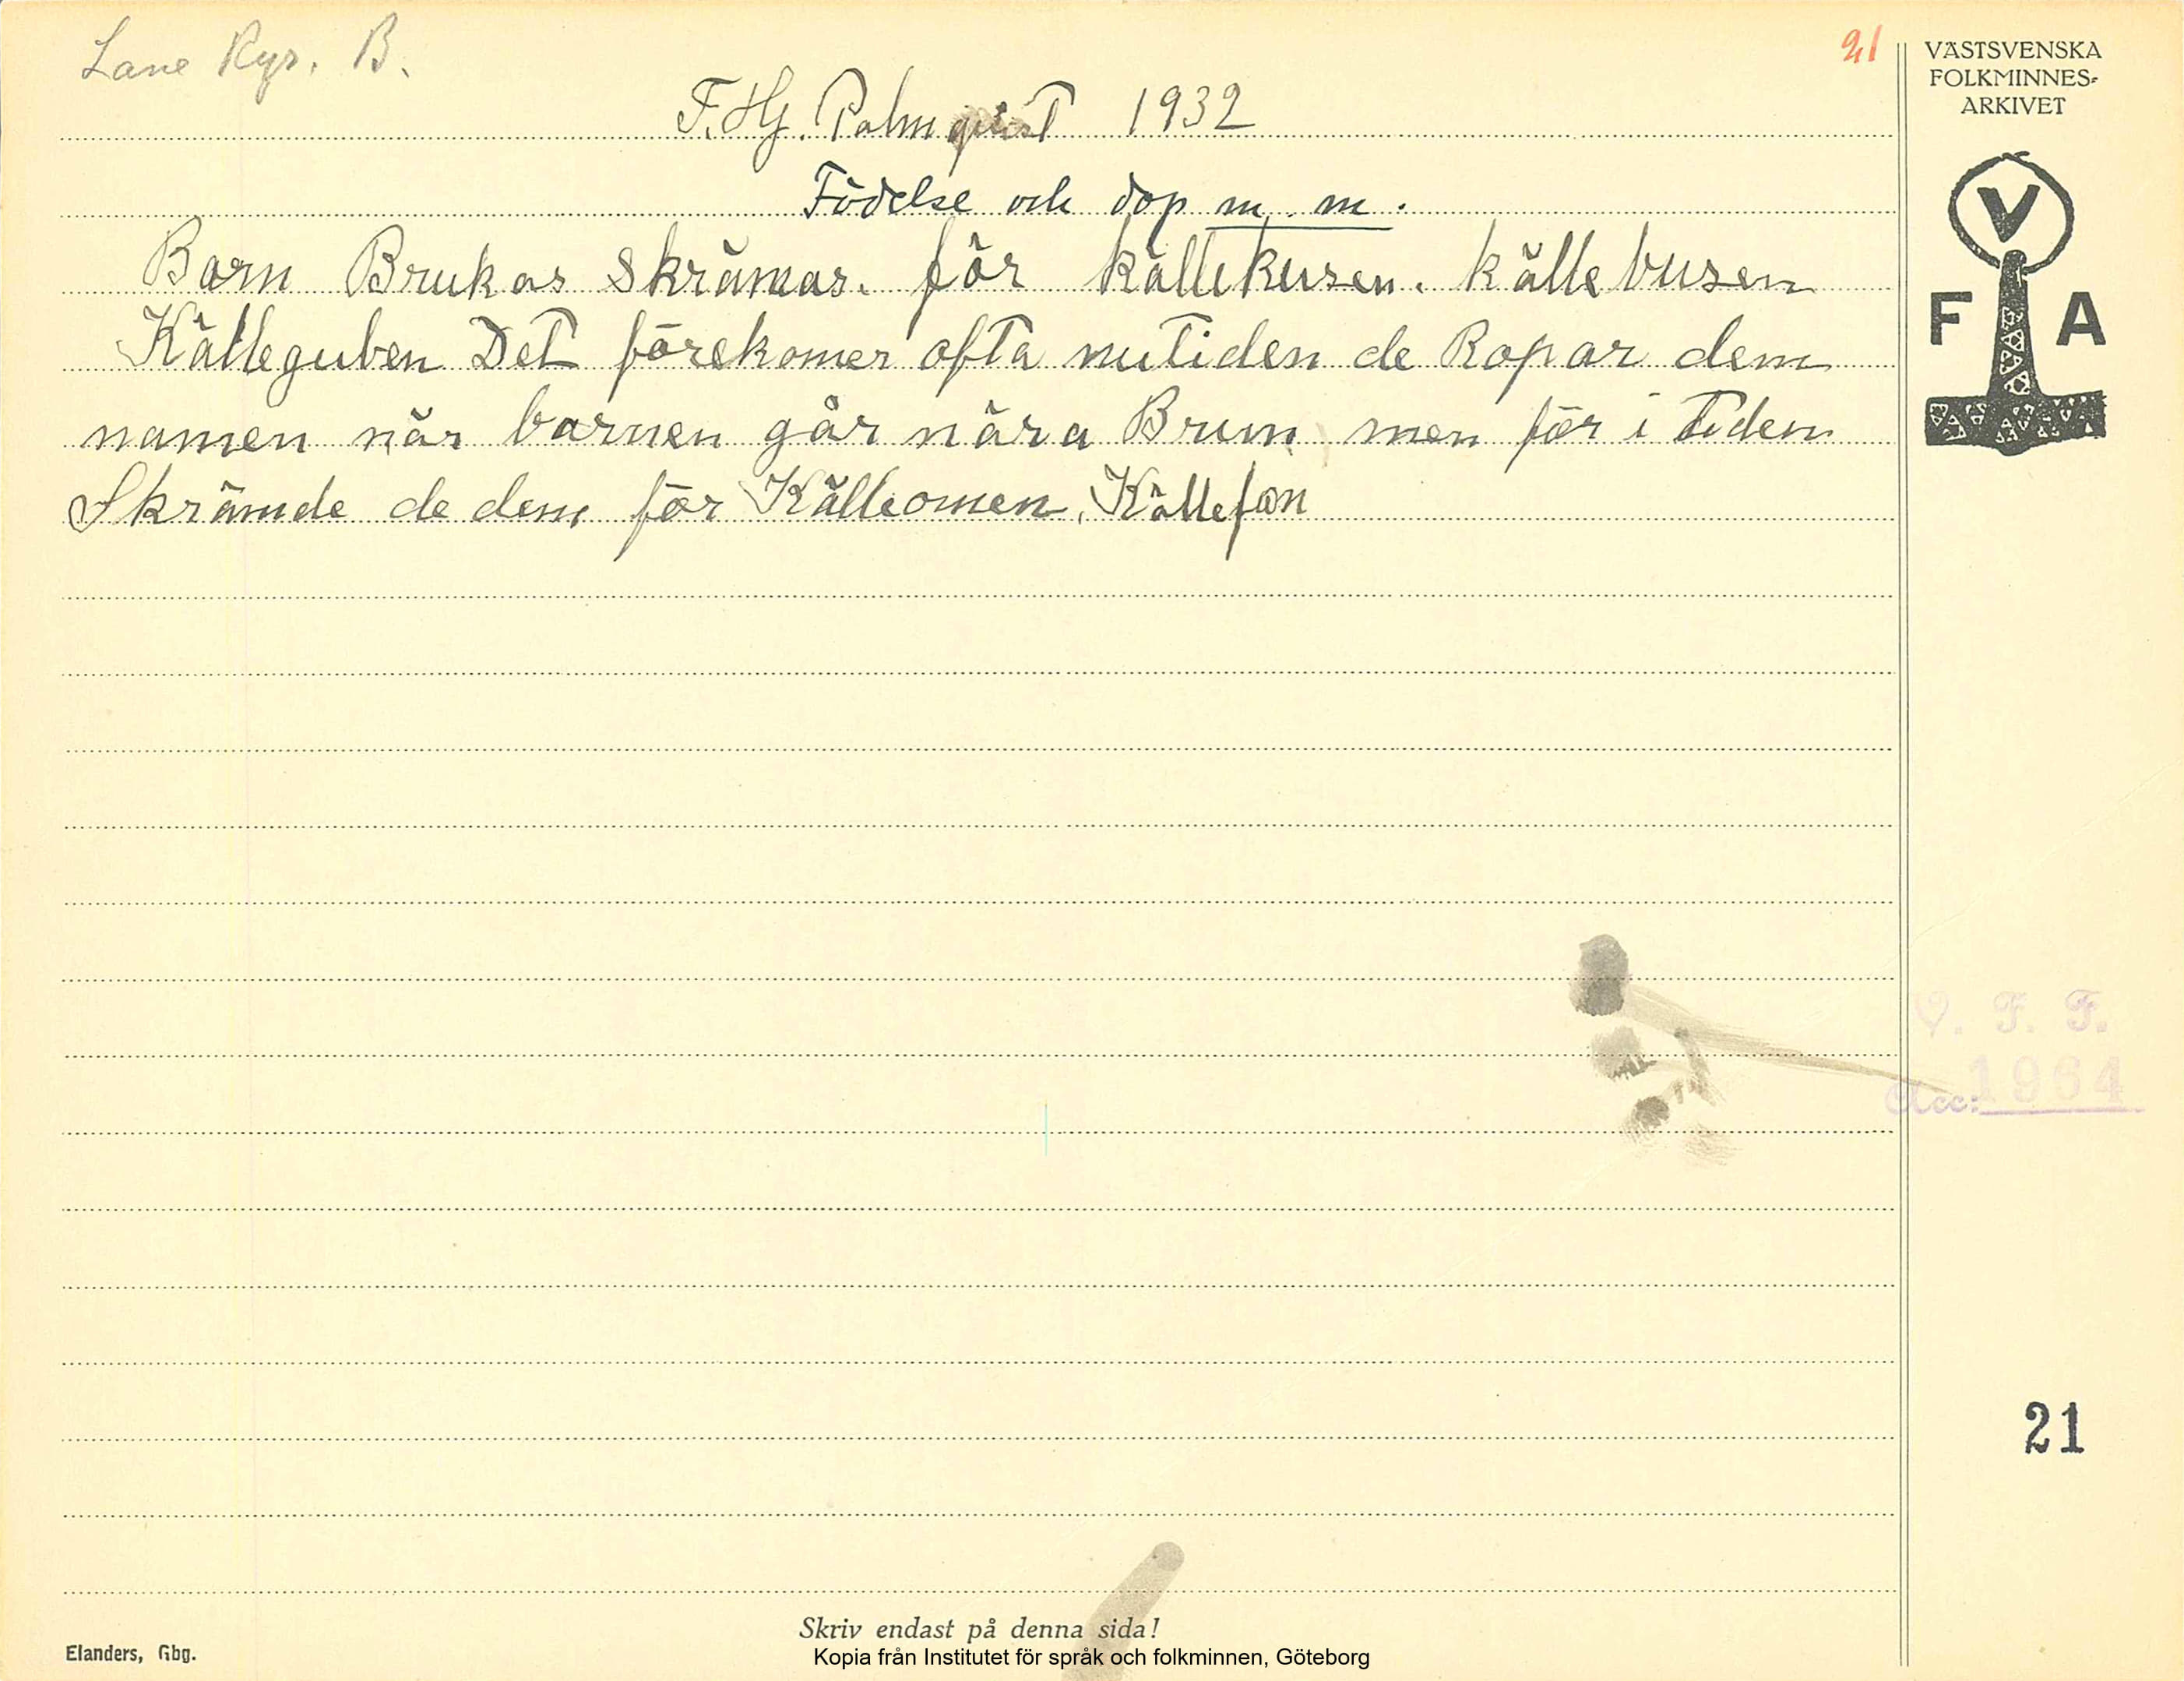 Lane Ryr. B.
21
VÄSTSVENSKA
FOLKMINNES-
ARKIVET
F. Hj. Palmqvist 1932
Födelse och dop m. m.
Barn Brukas Skrämas. för källekusen. källebusen
Källeguben Det förekomer ofta nutiden de Ropar dem
namen när barnen går nära Brun men för i tiden
Skrämde de dem för Källeomen, Källefan
V
F A
V. F. F.
Acc: 1964
21
Skriv endast på denna sida!
Elanders, Gbg.
Kopia från Institutet för språk och folkminnen, Göteborg